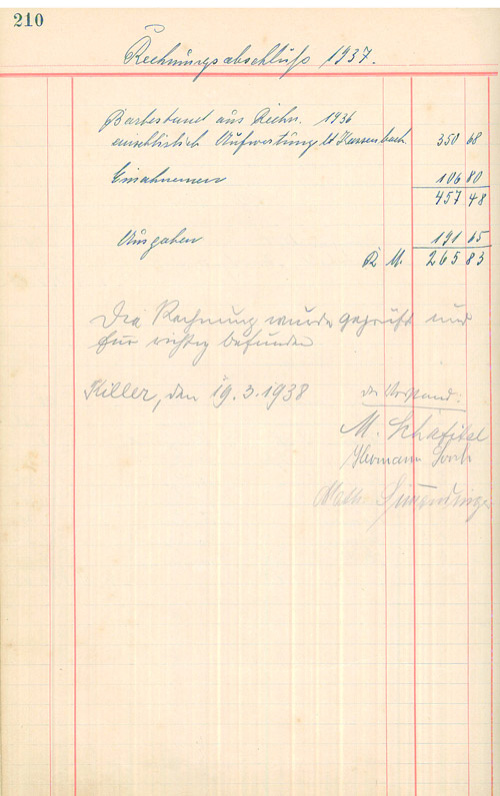 210
Rechnungsabschluß 1937.
Barbestand aus Rechn. 1936
einschlislich Aufwertung lt Kassenbuch 350 68
Einahmen 106 80
457 48
Ausgaben 191 65
R M. 265 83
Die Rechnung wurde geprüft und
für richtig befunden
Killer, den 19.3.1938 der Vorstand:
M.
Hermann
Simmendinger